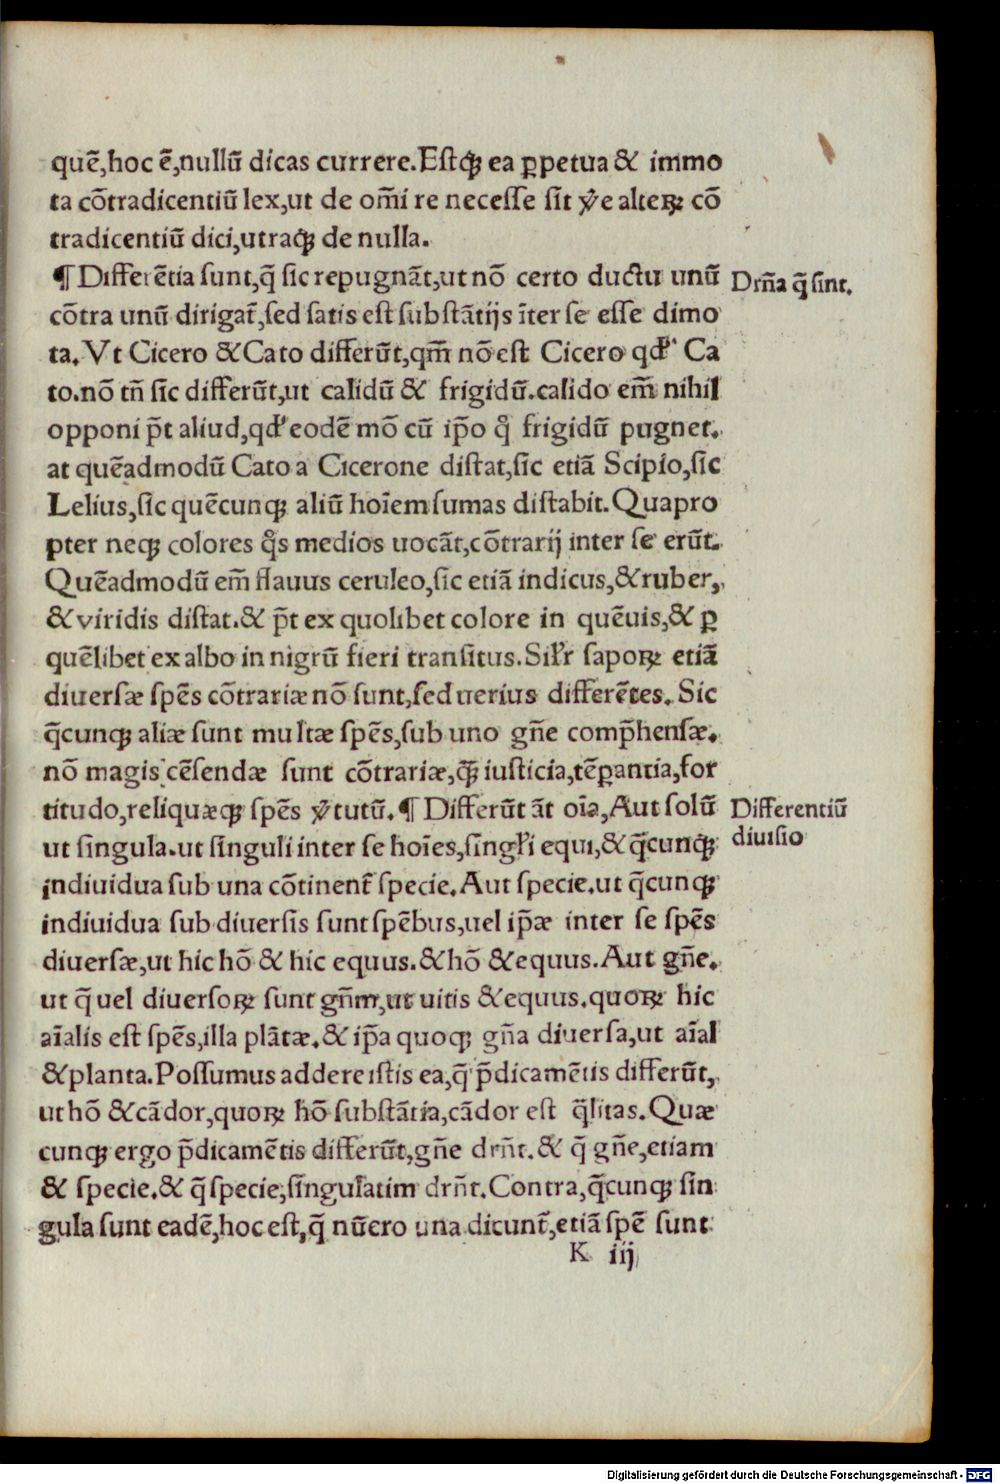 quē,hoc ē,nullū dicas currere.Estqꝫ ea ꝑpetua & immo
ta cōtradicentiū lex,ut de oм̄i re necesse sit ꝟe alteꝝ cō
tradicentiū dici,utraqꝫ de nulla.
¶ Differētia sunt,q̄ sic repugnāt,ut nō certo ductu unū
Drn̄a q̄ sint.
cōtra unū dirigat᷑,sed satis est substātijs īter se esse dimo
ta.Vt Cicero & Cato differūt,qm̄ nō est Cicero qđ Ca
to.nō tn̄ sic differūt,ut calidū & frigidū.calido em̄ nihil
opponi p̄t aliud,qđ eodē mō cū ip̄o qͥ frigidū pugnet.
at quēadmodū Cato a Cicerone distat,sic etiā Scipio,sic
Lelius,sic quēcunqꝫ aliū hoīem sumas distabit.Quapro
pter neqꝫ colores qͦs medios uocāt,cōtrarij inter se erūt.
Quēadmodū em̄ flauus ceruleo,sic etiā indicus,& ruber,
& viridis distat.& p̄t ex quolibet colore in quēuis,& ꝑ
quēlibet ex albo in nigrū fieri transitus.Sil̄r sapoꝝ etiā
diuersæ spēs cōtrariæ nō sunt,sed uerius differētes.Sic
q̄cunqꝫ aliæ sunt multæ spēs,sub uno gn̄e comp̄hensæ.
nō magis cēsendæ sunt cōtrariæ,q̄ꝫ iusticia,tēꝑantia,for
titudo,reliquæqꝫ spēs ꝟtutū.¶ Differūt āt oīa,Aut solū
Differentiū
diuisio
ut singula.ut singuli inter se hoīes,singl̄i equi,& q̄cunqꝫ
indiuidua sub una cōtinent᷑ specie.Aut specie.ut q̄cunqꝫ
indiuidua sub diuersis sunt spēbus,uel ip̄æ inter se spēs
diuersæ,ut hic hō & hic equus.& hō & equus.Aut gn̄e.
ut q̄ uel diuersoꝝ sunt gn̄m,ut uitis & equus.quoꝝ hic
aīalis est spēs,illa plātæ.& ip̄a quoqꝫ gn̄a diuersa,ut aīal
& planta.Possumus addere istis ea,q̄ p̄dicamētis differūt,
ut hō & cādor,quoꝝ hō substātia,cādor est q̄litas.Quæ
cunqꝫ ergo p̄dicamētis differūt,gn̄e drn̄t.& q̄ gn̄e,etiam
& specie.& q̄ specie,singulatim drn̄t.Contra,q̄cunqꝫ sin
gula sunt eadē,hoc est,q̄ nūero una dicunt᷑,etiā spē sunt
K iij
Digitalisierung gefördert durch die Deutsche Forschungsgemeinschaft - DFG